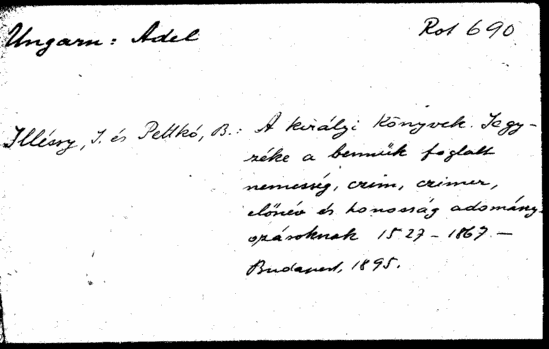 Ungarn: Adel
Rot 690
Illéssy, J. és Pettkó, B.: A királyi Könyvek. Jegy-
zéke a bennük foglalt
nemesség, czim, czimer,
előnév és honosság adomány-
ozásoknak 1527 – 1867. –
Budapest, 1895.